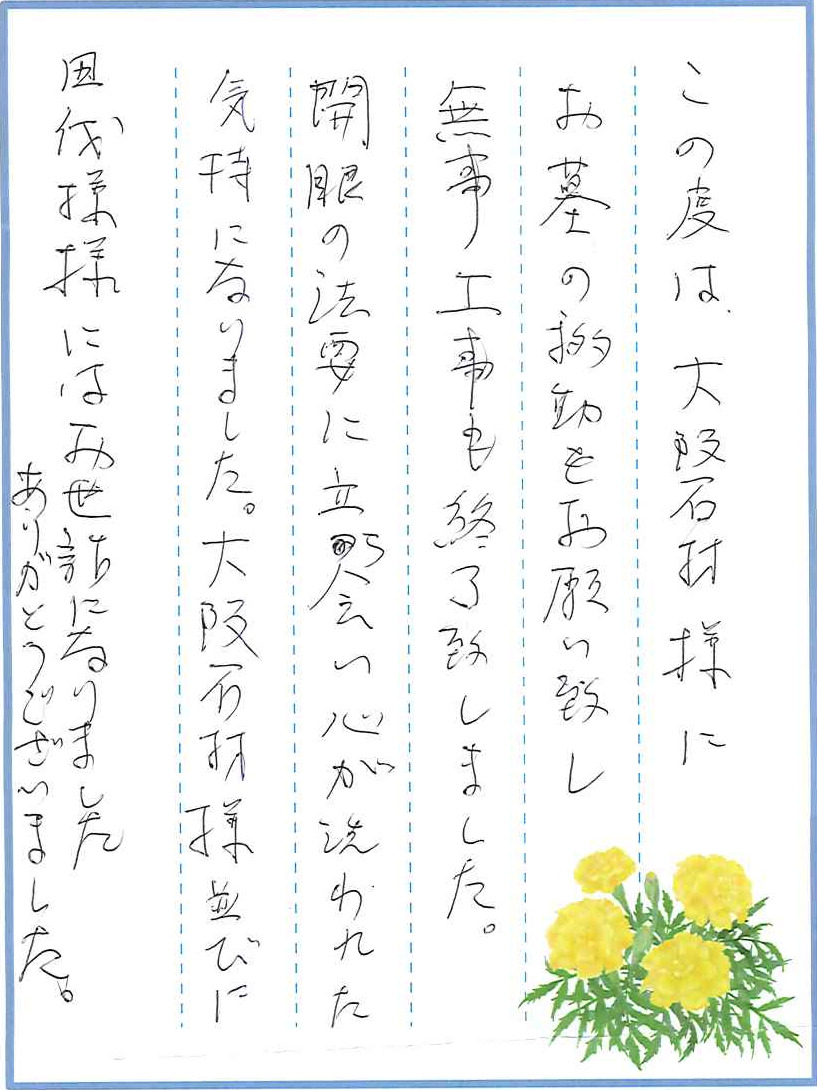 この度は、大阪石材様に
お墓の移動をお願い致し
無事工事も終了致しました。
開眼の法要に立会い心が洗われた
気持になりました。大阪石材様並びに
様様にはお世話になりました
ありがとうございました。